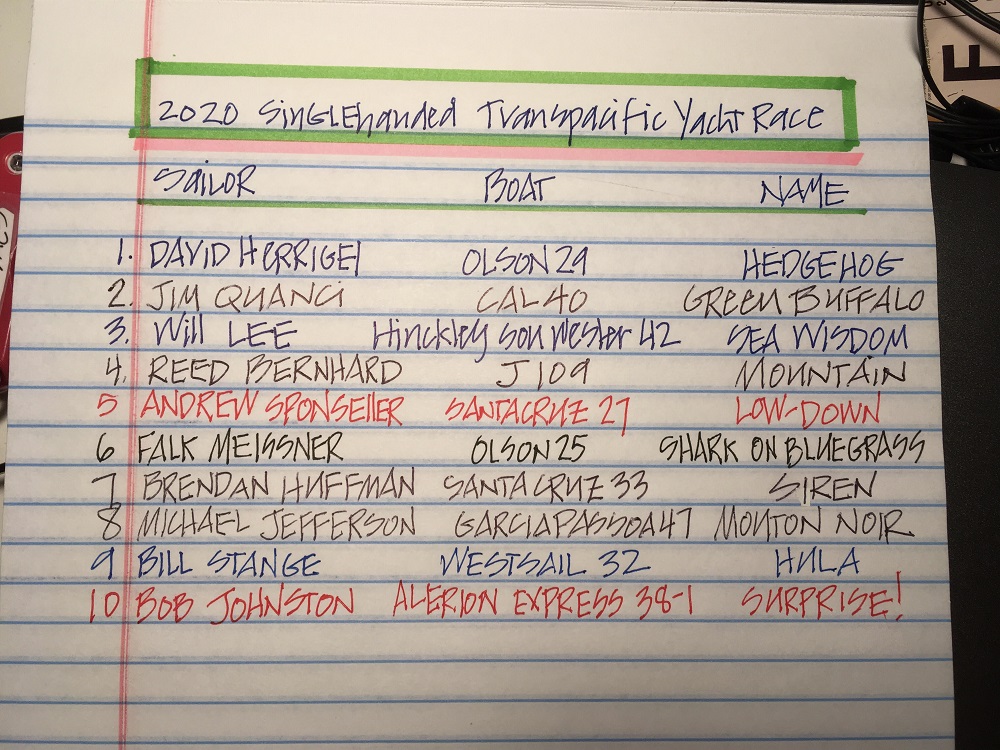 2020 Singlehanded Transpacific Yacht Race
SAILOR BOAT NAME
1. DAVID HERRIGEl OLSON 29 HEDGEHOG
2. JIM QUANCi CAL 40 GREEN BUFFALO
3. Will LEE Hinckley Sou Wester 42 SEA WISDOM
4. REED BERNHARD J 109 MOUNTAiN
5 ANDREW SPONSEllER SANTA CRUZ 27 LOW-DOWN
6 FALK MEISSNER OLSON 25 SHARK ON BLUEGRASS
7 BRENDAN HUFFMAN SANTA CRUZ 33 SIREN
8 MICHAEL JEFFERSON GARCIA PASSOA 47 MOUTON NOIR
9 BILL STANGE WESTSAIL 32 HULA
10 BOB JOHNSTON ALERION EXPRESS 38-1 SURPRISE!
E